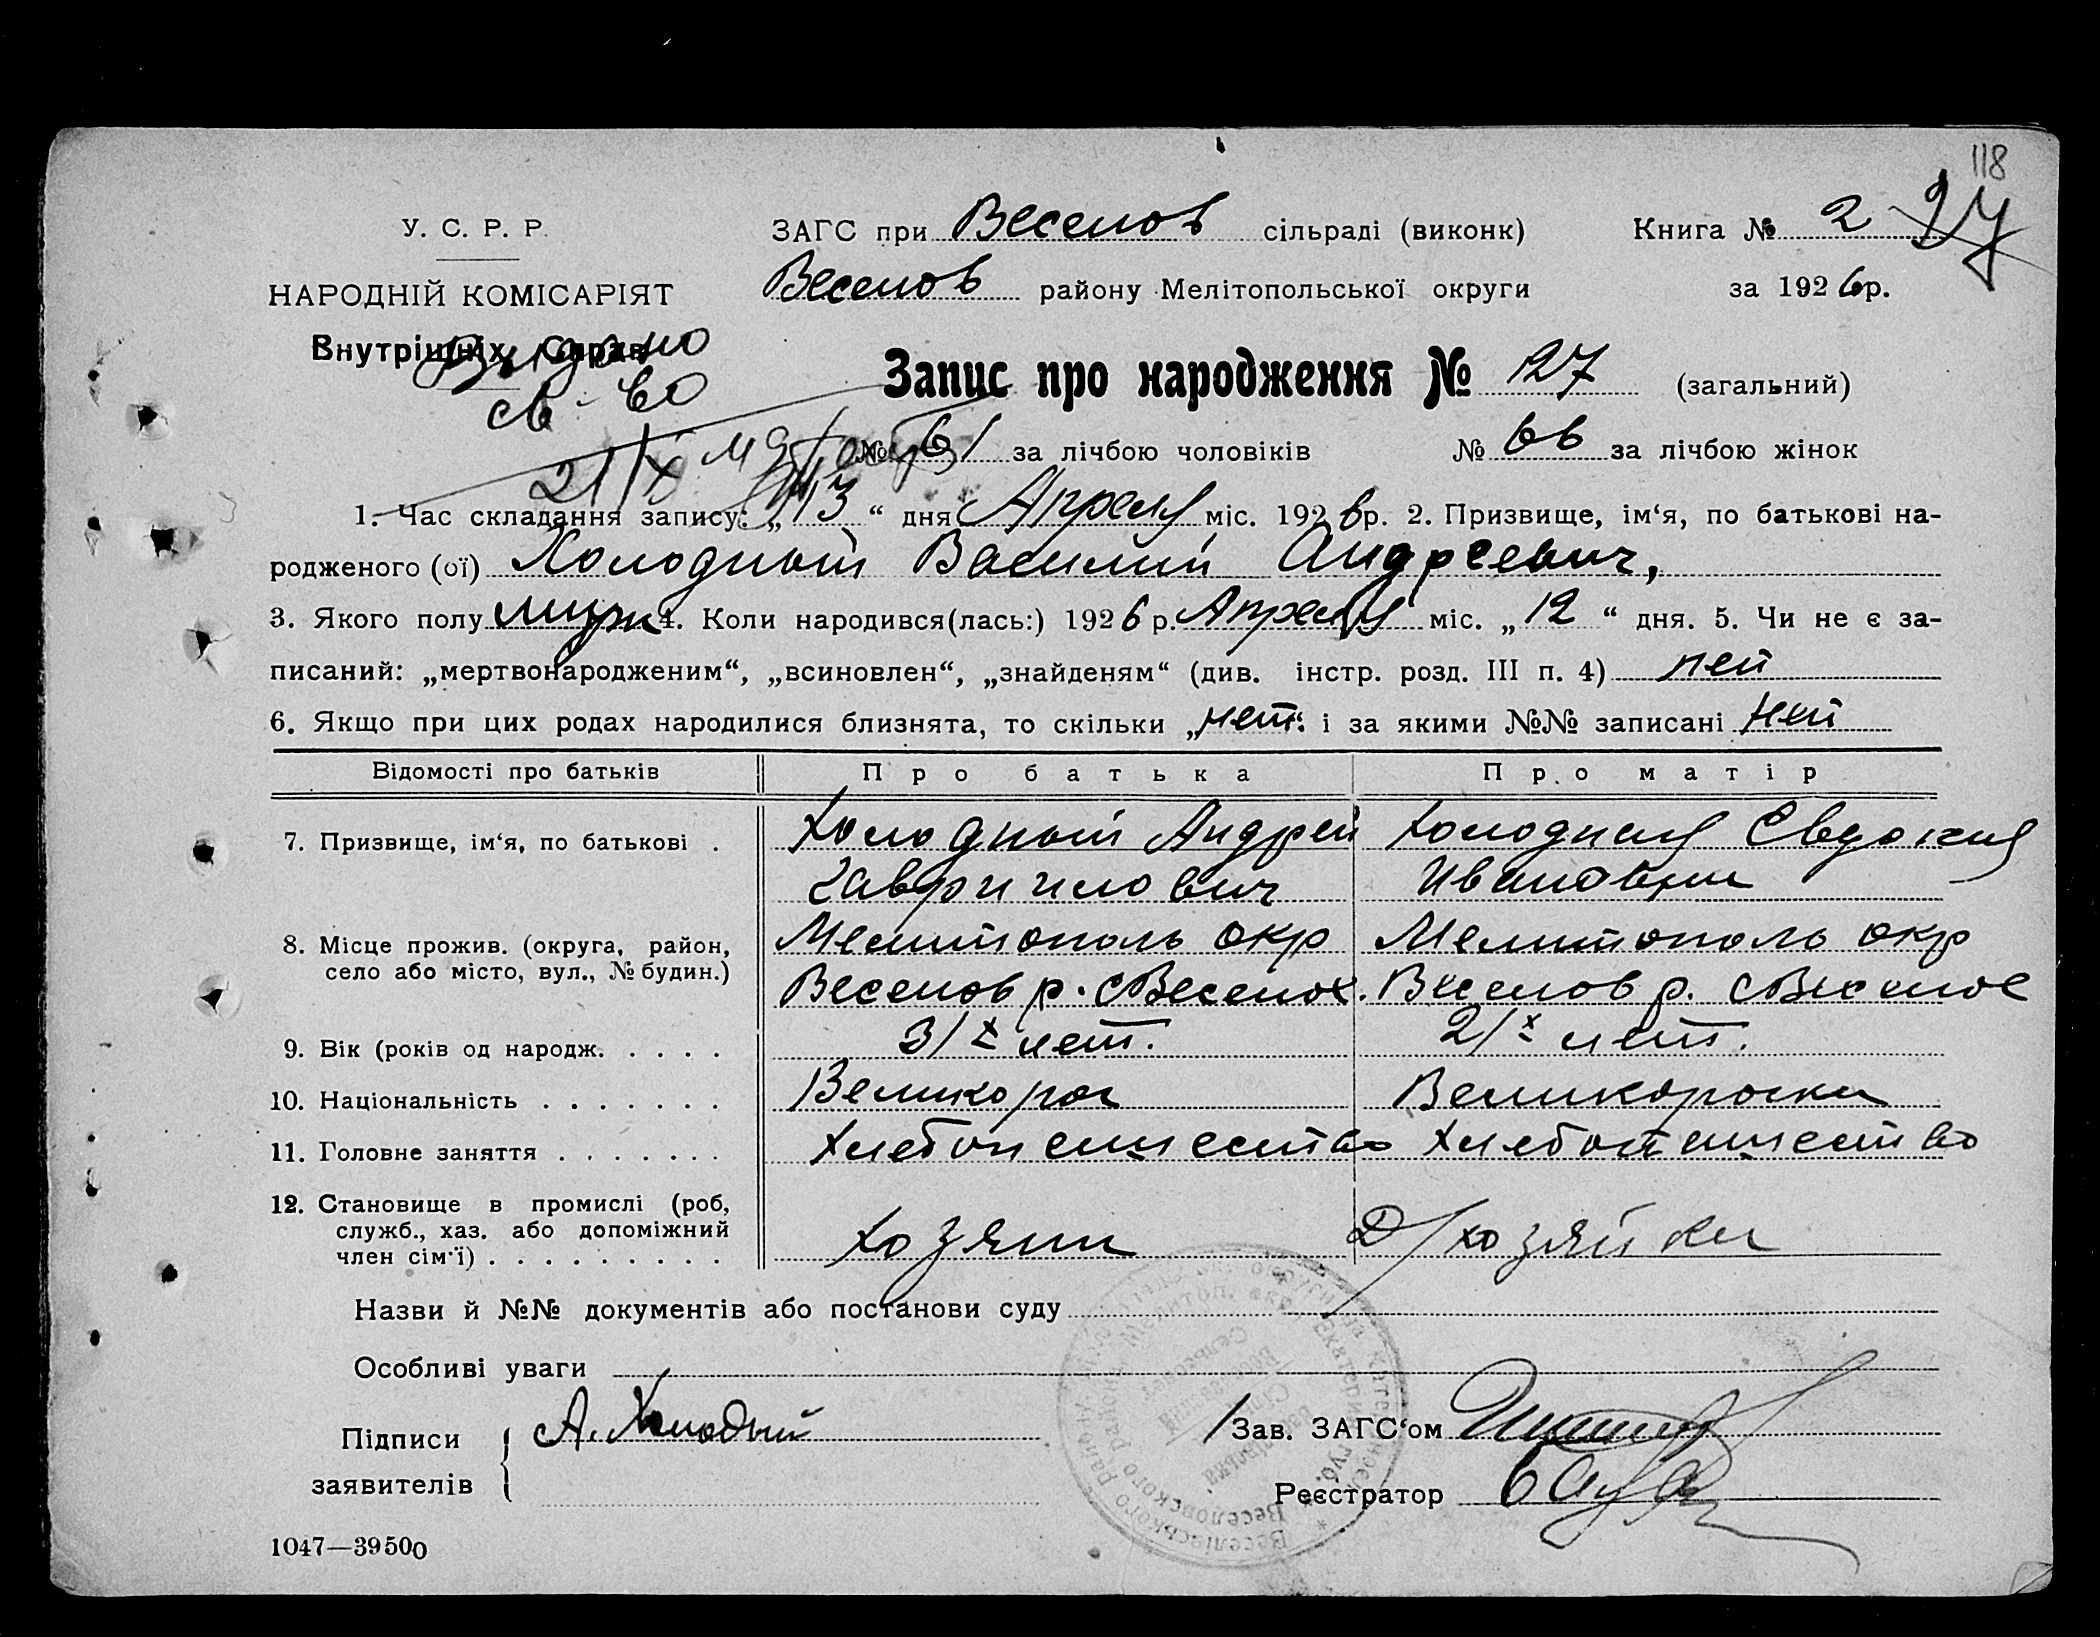 118
У. С. Р. Р.
НАРОДНІЙ КОМІСАРІЯТ
Внутрішніх Справ
Выдано
св-во
21/X
ЗАГС при Веселов сільраді (виконк)
Книга № 2
27
Веселов району Мелітопольської округи
за 1926 р.
Запис про народження № 127 (загальний)
№ 61 за лічбою чоловіків № 66 за лічбою жінок
1. Час складання запису: „13“ дня Апреля міс. 1926 р. 2. Призвище, ім‘я, по батькові на-
родженого (ої) Холодный Василий Андреевич,
3. Якого полу муж 4. Коли народився(лась:) 1926 р. Апреля міс. „12“ дня. 5. Чи не є за-
писаний: „мертвонародженим“, „всиновлен“, „знайденям“ (див. інстр. розд. III п. 4) нет
6. Якщо при цих родах народилися близнята, то скільки „нет“ і за якими №№ записані нет
Відомості про батьків Про батька Про матір
7. Призвище, ім‘я, по батькові . Холодный Андрей Холодная Евдокия
Гавриилович Ивановна
8. Місце прожив. (округа, район, Мелитополь окр Мелитополь окр
село або місто, вул., № будин.) Веселов р. с Веселое. Веселов р. с Веселое
9. Вік (років од народж. . . . . 31х лет. 21х лет.
10. Національність . . . . . . . Великорос Великороска
11. Головне заняття . . . . . . . Хлебопашество Хлебопашество
12. Становище в промислі (роб,
служб., хаз. або допоміжний
член сім‘ї) . . . . . . . . . Хозяин Д/хозяйка
Назви й №№ документів або постанови суду
Особливі уваги
Підписи
заявителів
А. Холодный
/Зав. ЗАГС‘ом
Реєстратор
1047—39500